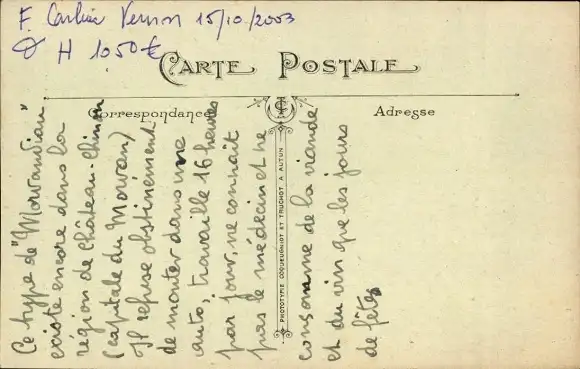 F. Carlier Vernon 15/10/2003
H 1050€
CARTE POSTALE
Correspondance
Adresse
Ce type de "Morvandiau"
existe encore dans la
région de Château-Chinon
(capitale du Morvan)
Il refuse obstinément
de monter dans une
auto, travaille 16 heures
par jour, ne connait
pas le médecin et ne
consomme de la viande
et du vin que les jours
de fêtes
PHOTOTYPIE COQUEUGNIOT ET TRUCHOT A AUTUN